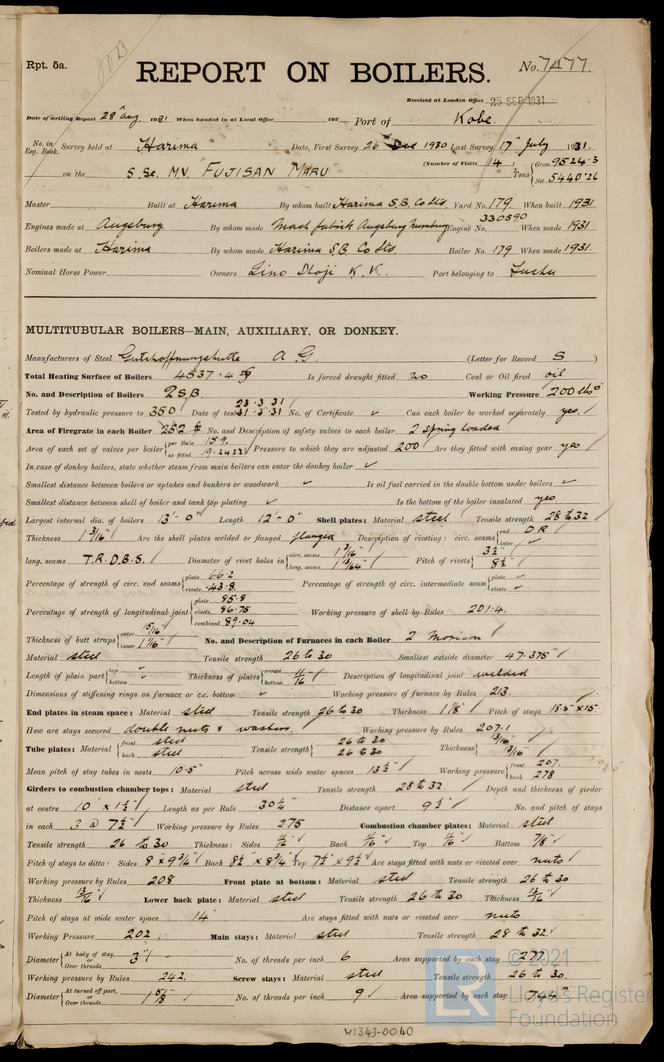 Rpt. 5a.
REPORT ON BOILERS.
No. 7477.
Received at London Office 25 SEP 1931
Date of writing Report 28th Aug 1931 When handed in at Local Office 193 Port of Kobe
No. in Reg. Book. Survey held at Harima Date, First Survey 26th Dec 1930 Last Survey 17th July 1931
(Number of Visits 14)
on the S. Sc. M.V. FUJISAN MARU Tons {Gross 9524.3 Net 5440.26
Master Built at Harima By whom built Harima S.B. Co Ltd Yard No. 179 When built 1931
Engines made at Augsburg By whom made Masch fabrik Augsburg Nurnburg Engine No. 330890 When made 1931
Boilers made at Harima By whom made Harima S.B. Co Ltd Boiler No. 179 When made 1931.
Nominal Horse Power Owners Iino Shoji K.K. Port belonging to Fuchu
MULTITUBULAR BOILERS—MAIN, AUXILIARY, OR DONKEY.
Manufacturers of Steel Gutehoffnungshutte A G (Letter for Record S)
Total Heating Surface of Boilers 4537.4 Is forced draught fitted no Coal or Oil fired oil
No. and Description of Boilers 2 S.B. Working Pressure 200 lbs
Tested by hydraulic pressure to 350 Date of test 23.3.31 31.3.31 No. of Certificate ✓ Can each boiler be worked separately yes
Area of Firegrate in each Boiler 252 No. and Description of safety valves to each boiler 2 spring loaded
Area of each set of valves per boiler {per Rule 15.9. as fitted 19.24 Pressure to which they are adjusted 200 Are they fitted with easing gear yes
In case of donkey boilers, state whether steam from main boilers can enter the donkey boiler ✓
Smallest distance between boilers or uptakes and bunkers or woodwork ✓ Is oil fuel carried in the double bottom under boilers ✓
Smallest distance between shell of boiler and tank top plating ✓ Is the bottom of the boiler insulated yes
Largest internal dia. of boilers 13'-0" Length 12'-0" Shell plates: Material steel Tensile strength 28 to 32
Thickness 1 3/16" Are the shell plates welded or flanged flanged Description of riveting: circ. seams {end DR inter. ✓
long. seams T.R.D.B.S. Diameter of rivet holes in {circ. seams 1 3/16" long. seams 1 13/64" Pitch of rivets {3½" 8½"
Percentage of strength of circ. end seams {plate 66.2 rivets 43.8 Percentage of strength of circ. intermediate seam {plate ✓ rivets ✓
Percentage of strength of longitudinal joint {plate 85.8 rivets 86.75 combined 89.04 Working pressure of shell by Rules 201.4
Thickness of butt straps {outer 15/16" inner 1 1/16" No. and Description of Furnaces in each Boiler 2 Morison
Material steel Tensile strength 26 to 30 Smallest outside diameter 47.375"
Length of plain part {top ✓ bottom ✓ Thickness of plates {crown bottom 11/16" Description of longitudinal joint welded
Dimensions of stiffening rings on furnace or c.c. bottom ✓ Working pressure of furnace by Rules 213
End plates in steam space: Material steel Tensile strength 26 to 30 Thickness 1 1/8" Pitch of stays 18.5 × 15
How are stays secured double nuts & washers. Working pressure by Rules 207.1
Tube plates: Material {front steel back steel Tensile strength {26 to 30 26 to 30 Thickness {13/16" 13/16"
Mean pitch of stay tubes in nests 10.5" Pitch across wide water spaces 13½" Working pressure {front 207. back 278
Girders to combustion chamber tops: Material steel Tensile strength 28 to 32 Depth and thickness of girder
at centre 10" × 1½" Length as per Rule 30¼" Distance apart 9½" No. and pitch of stays
in each 3 @ 7½" Working pressure by Rules 275 Combustion chamber plates: Material steel
Tensile strength 26 to 30 Thickness: Sides 11/16" Back 11/16" Top 11/16" Bottom 7/8"
Pitch of stays to ditto: Sides 8 × 9¾" Back 8½" × 8¾" Top 7½" × 9½" Are stays fitted with nuts or riveted over nuts
Working pressure by Rules 208 Front plate at bottom: Material steel Tensile strength 26 to 30
Thickness 13/16" Lower back plate: Material steel Tensile strength 26 to 30 Thickness 13/16"
Pitch of stays at wide water space 14" Are stays fitted with nuts or riveted over nuts
Working Pressure 202 Main stays: Material steel Tensile strength 28 to 32
Diameter {At body of stay, or Over threads 3" No. of threads per inch 6 Area supported by each stay 277
Working pressure by Rules 242 Screw stays: Material steel Tensile strength 26 to 30
Diameter {At turned off part, or Over threads 1 5/8" No. of threads per inch 9 Area supported by each stay 74.4
W1343-0040
© 2021
Lloyd's Register
Foundation